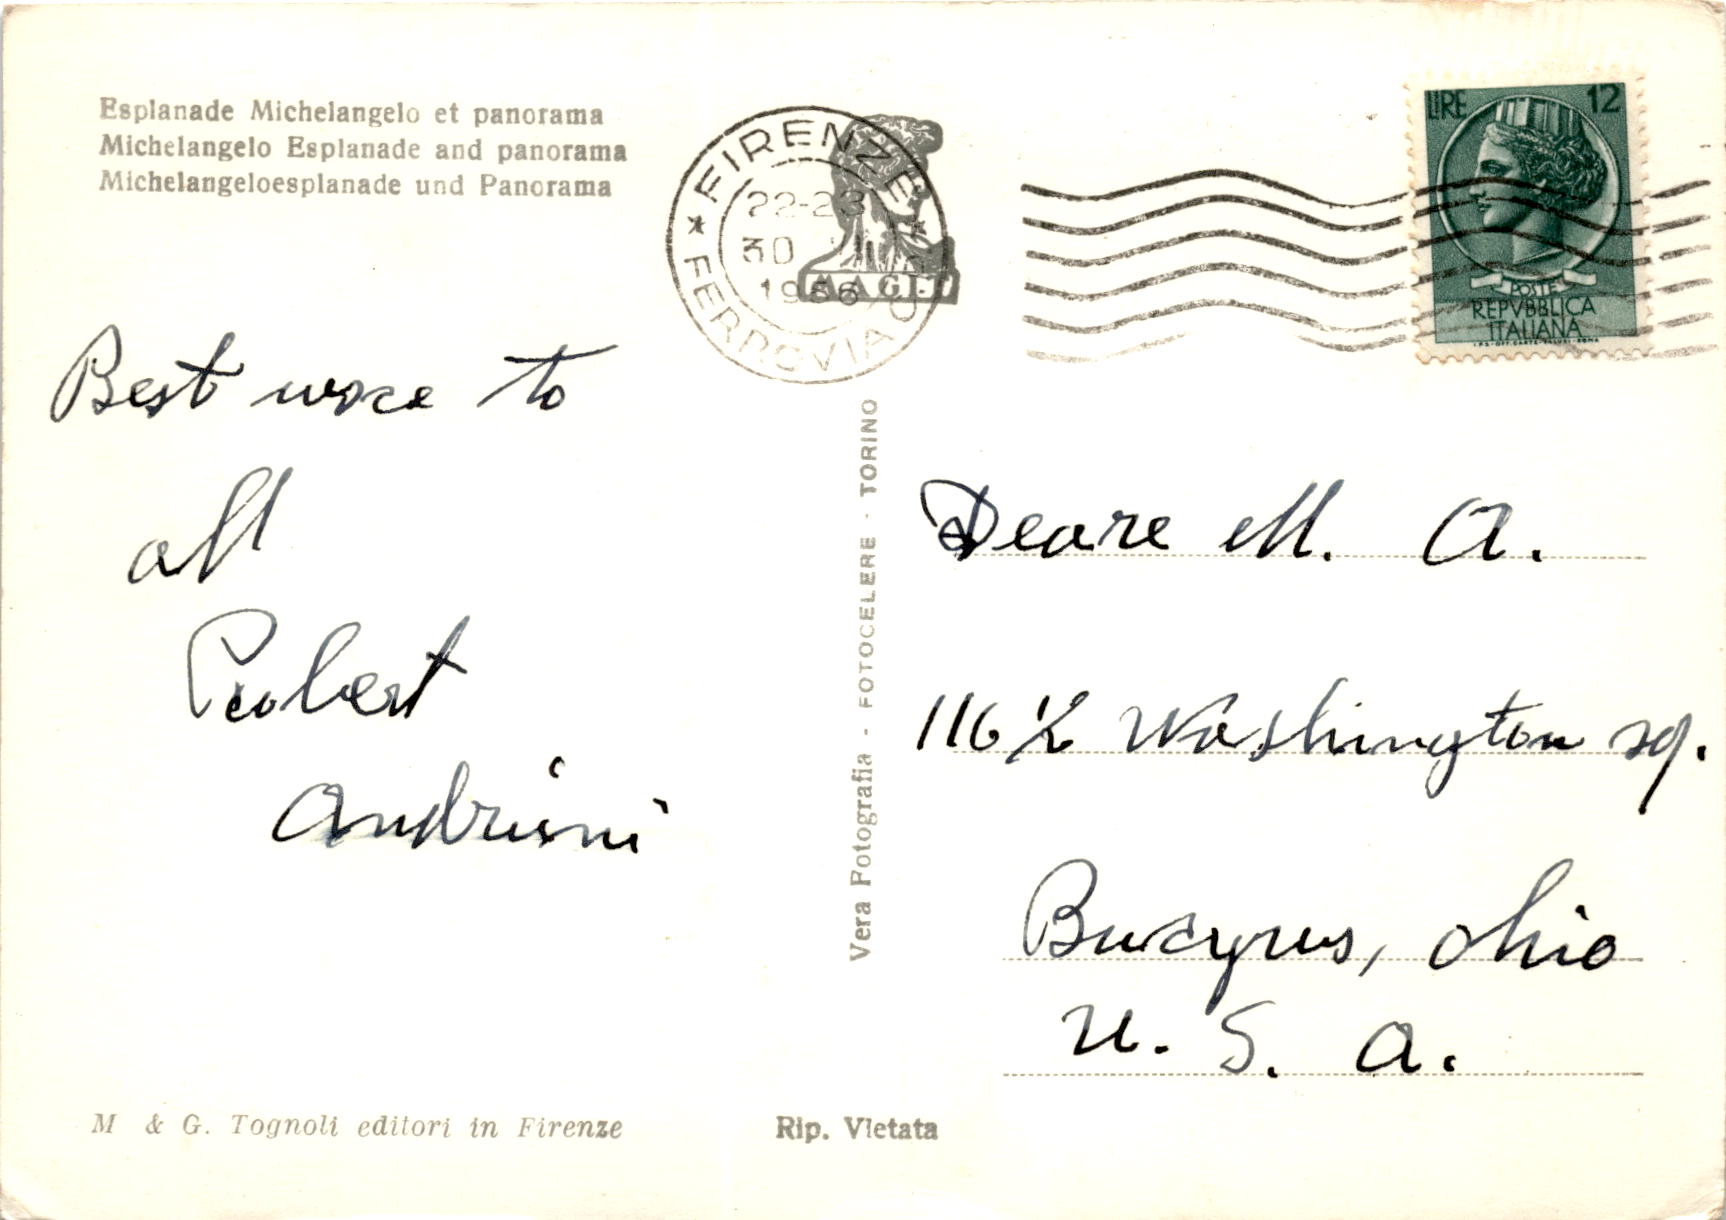 Esplanade Michelangelo et panorama
Michelangelo Esplanade and panorama
Michelangeloesplanade und Panorama
FIRENZE
FERROVIA
22-23
30
1956
LIRE 12
POSTE
REPVBBLICA
ITALIANA
Best to
all
Robert
Andrioni
Vera Fotografia - FOTOCELERE - TORINO
Deare M. A.
116 1/2 Washington sq.
Bucyrus, Ohio
U. S. A.
M & G. Tognoli editori in Firenze
Rip. Vietata